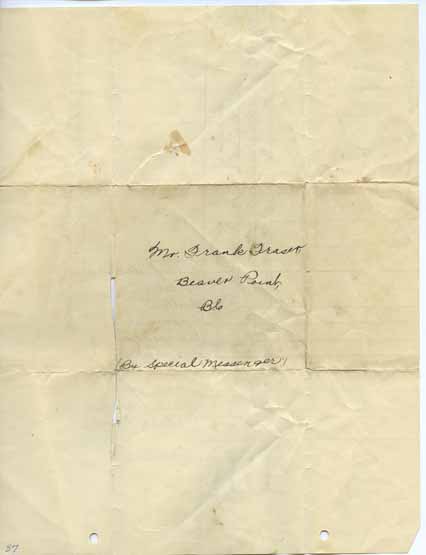 Mr. Frank Fraser
Beaver Point,
BC
(By Special Messenger)
87